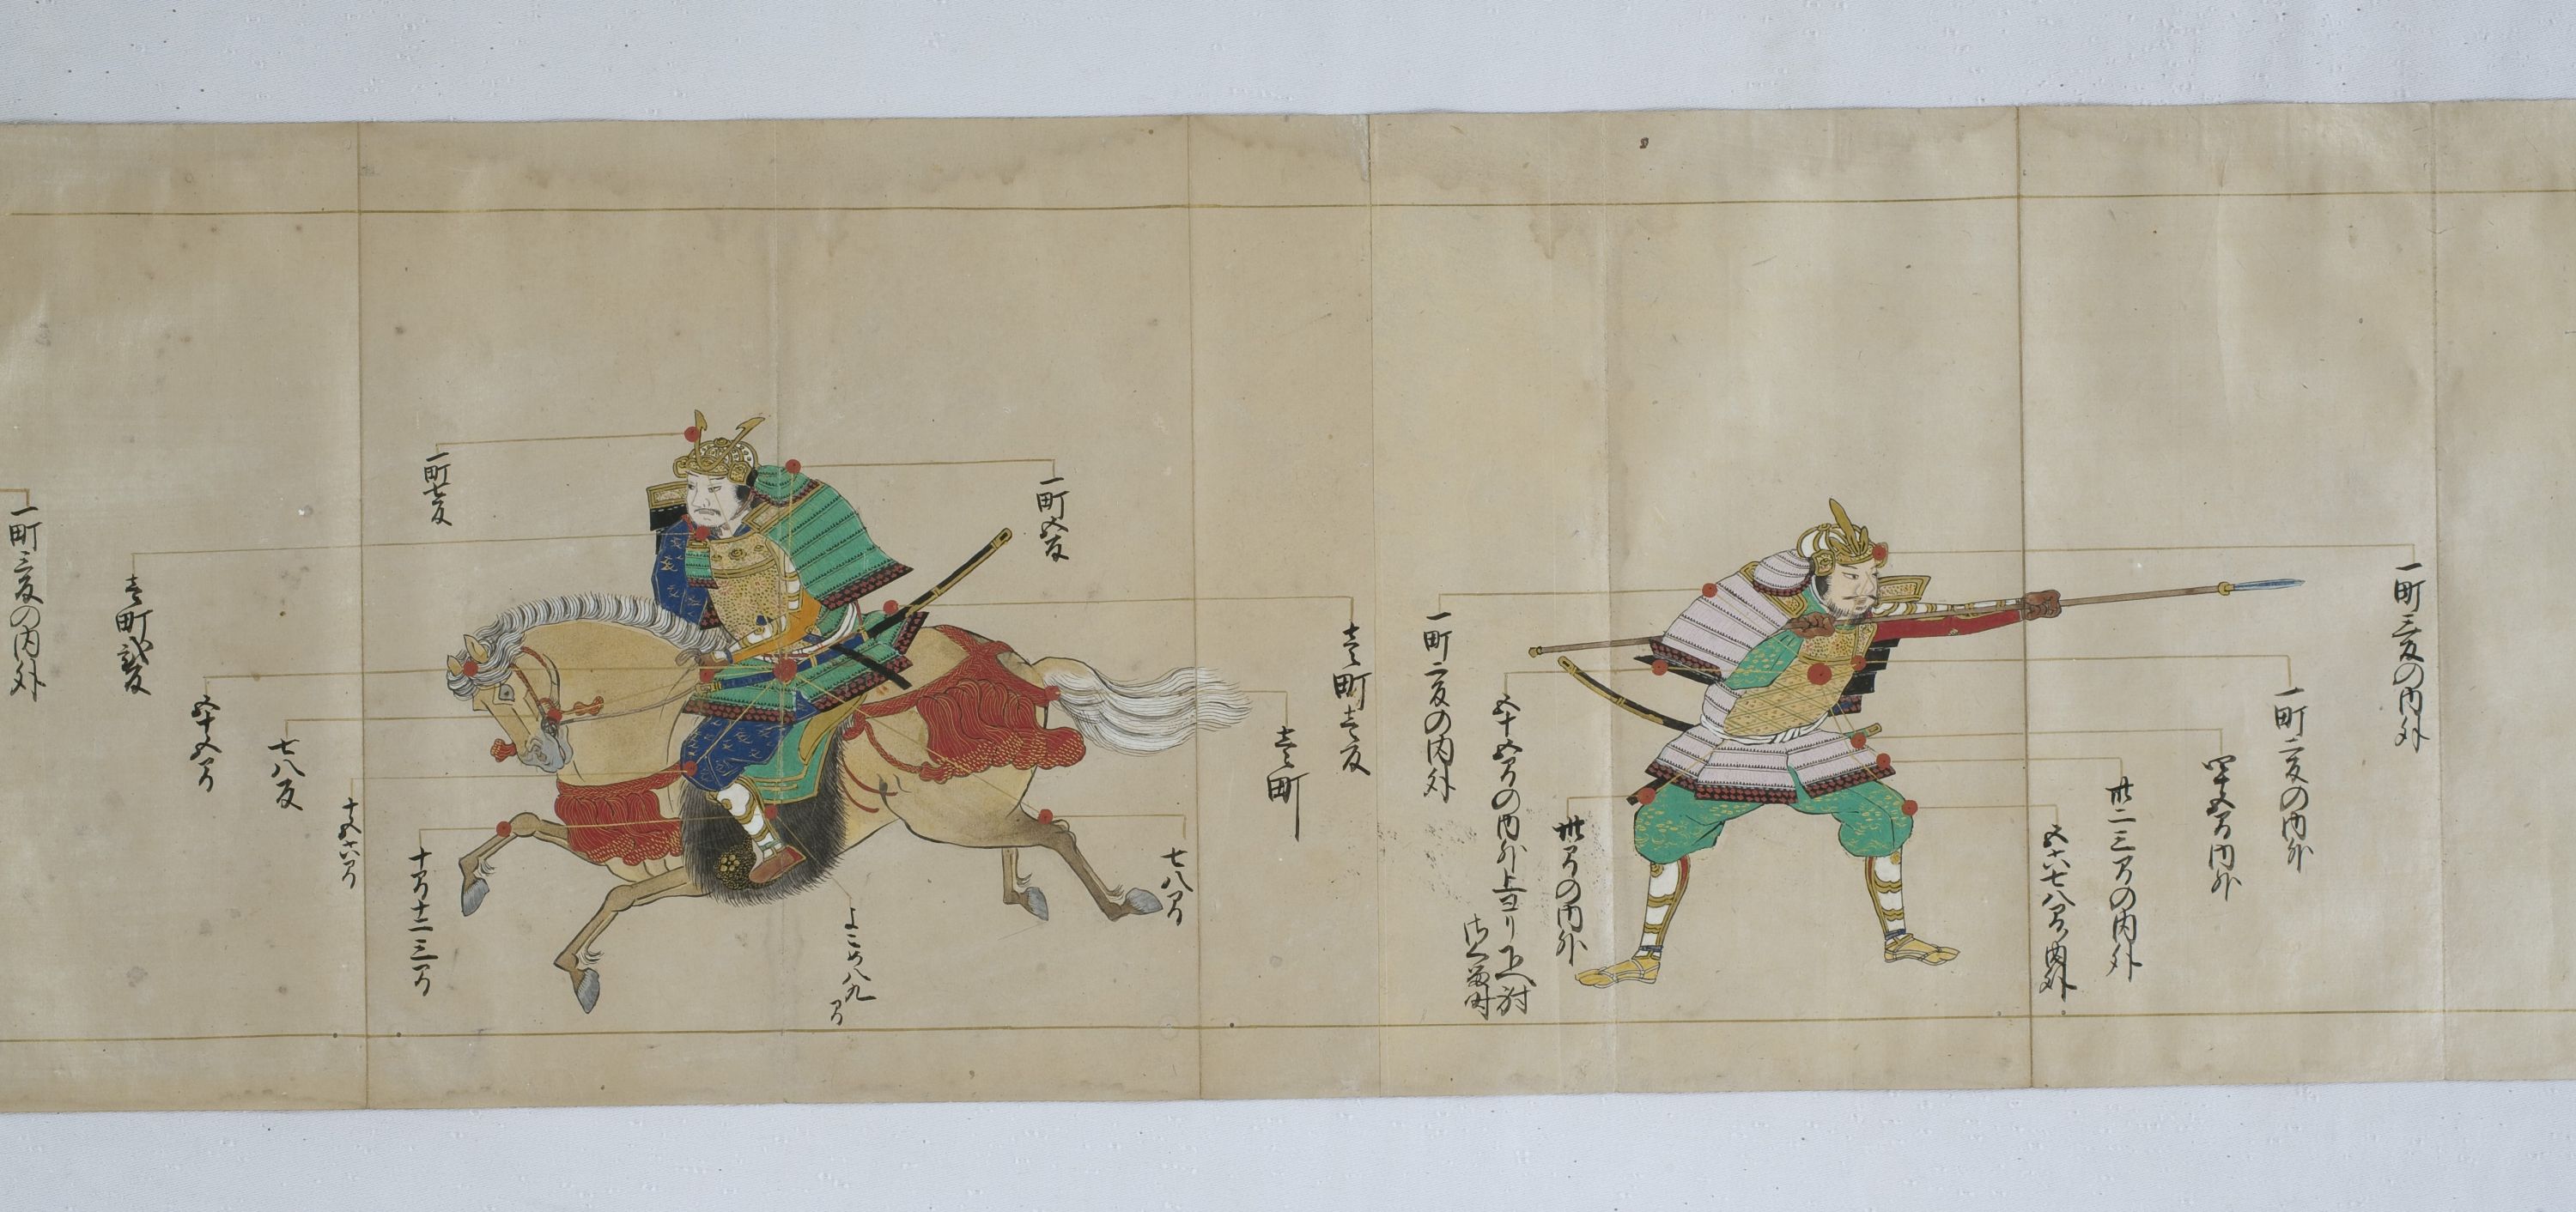 一町三反の内外
一町二反の内外
四十五間内外
卅二三間の内外
五六七八間内外
卅間の内外
五十五間の内外上ヨリ下へ討
一町二反の内外
壱町壱反
壱町
七八間
一町五反
よこめ八九
間
一町七反
十間十二三間
十五六間
七八反
五十五間
壱町弐反
一町三反の内外